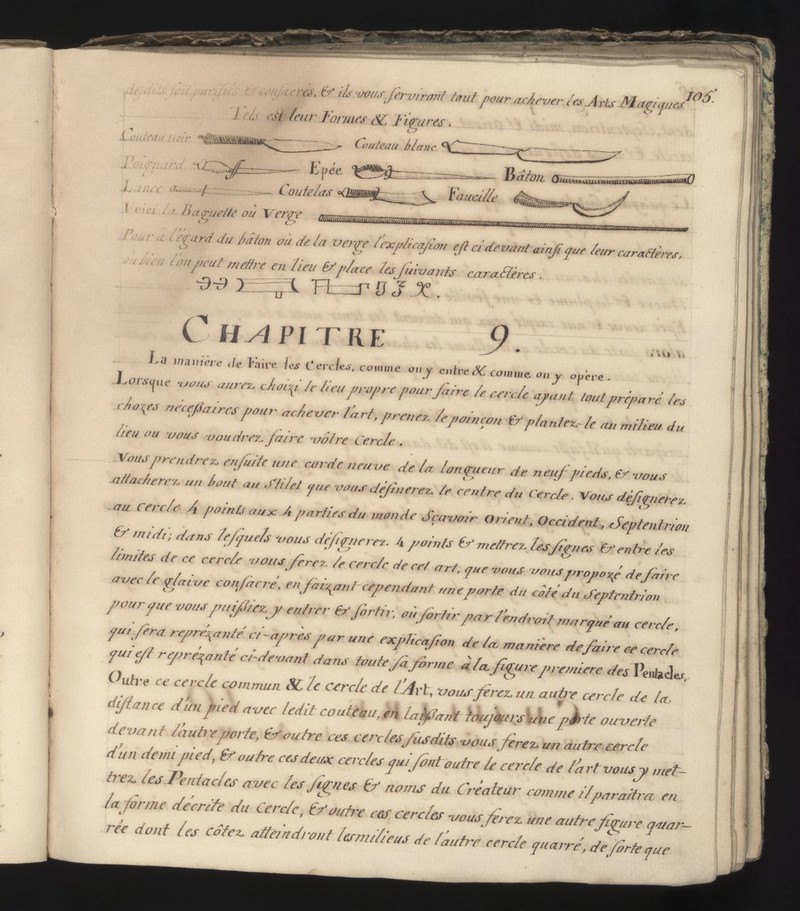 105.
desdits soit purifiés & consacrés, & ils vous serviront tout pour achever les Arts Magiques
Tels est leur Formes & Figures.
Couteau noir Couteau blanc
Poignard Epée Bâton
Lance Coutelas Faucille
Voici la Baguette où Verge
Pour à l'égard du bâton où de la verge l'explicasion est ci devant ainsi que leur caractères,
où bien l'on peut mettre en lieu & place les suivants caractères.
CHAPITRE 9.
La manière de Faire les Cercles, comme on y entre & comme on y opère.
Lorsque vous aurez choizi le lieu propre pour faire le cercle ayant tout préparé les
chozes nécessaires pour achever l'art, prenez le poinçon & plantez-le au milieu du
lieu ou vous voudrez faire vôtre Cercle.
Vous prendrez ensuite une corde neuve de la longueur de neuf pieds, & vous
attacherez un bout au Stilet que vous désinerez le centre du Cercle. Vous désignerez
au Cercle 4 points aux 4 parties du monde Sçavoir Orient, Occident, Septentrion
& midi; dans lesquels vous désignerez 4 points & mettrez les signes & entre les
limites de ce cercle vous ferez le cercle de cet art, que vous vous propozé de faire
avec le glaive consacré, en faizant cependant une porte du côté du Septentrion
pour que vous puissiez y entrer & sortir, où sortir par l'endroit marqué au cercle,
qui sera reprézanté ci-après par une explicasion de la manière de faire ce cercle
qui est reprézanté ci-devant dans toute sa forme à la figure premiere des Pentacles,
Outre ce cercle commun & le cercle de l'Art, vous ferez un autre cercle de la
distance d'un pied avec ledit couteau, en laissant toujours une porte ouverte
devant l'autre porte, & outre ces cercles susdits vous ferez un autre cercle
d'un demi pied, & outre ces deux cercles qui sont outre le cercle de l'art vous y met-
trez les Pentacles avec les signes & noms du Créateur comme il paraitra en
la forme décrite du Cercle, & outre ces cercles vous ferez une autre figure quar-
rée dont les côtez atteindront les milieus de l'autre cercle quarré, de sorte que